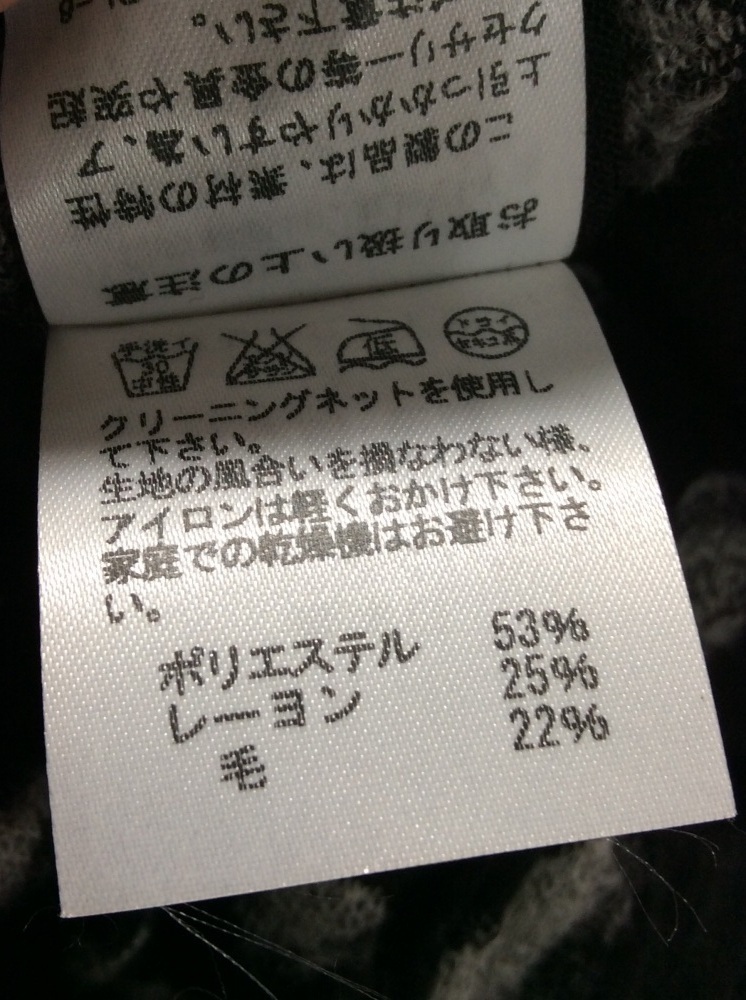 お取り扱い上の注意
この製品は、素材の特性
上引っかかりやすい為、ア
クセサリー等の金具や突起
ご注意下さい。
手洗イ
30
中性
エンソ
サラシ
低
ドライ
セキユ系
クリーニングネットを使用し
て下さい。
生地の風合いを損なわない様、
アイロンは軽くおかけ下さい。
家庭での乾燥機はお避け下さ
い。
ポリエステル 53%
レーヨン 25%
毛 22%